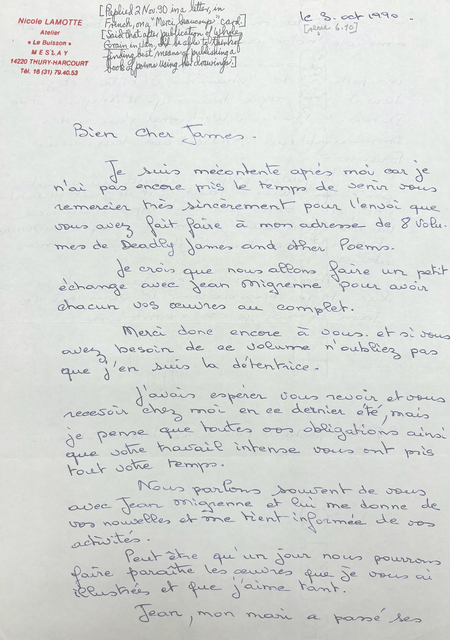 Nicole LAMOTTE
Atelier
« Le Buisson »
MESLAY
14220 THURY-HARCOURT
Tél. 16 (31) 79.40.53
[Replied 2 Nov. 90 in a letter, in
French, on a "Merci beaucoup" card.]
[Said that after publication of Whole
Grain in Jan, I'd be able to think of
finding best means of publishing a
book of poems using her drawings.]
le 3. oct 1990.
Bien cher James.
Je suis mécontente après moi car je
n'ai pas encore pris le temps de venir vous
remercier très sincèrement pour l'envoi que
vous avez fait faire à mon adresse de 8 volu-
mes de Deadly James and other Poems.
Je crois que nous allons faire un petit
échange avec Jean Migrenne pour avoir
chacun vos œuvres au complet.
Merci donc encore à vous. et si vous
avez besoin de ce volume n'oubliez pas
que j'en suis la détentrice.
J'avais espérer vous revoir et vous
recevoir chez moi en ce dernier été, mais
je pense que toutes vos obligations ainsi
que votre travail intense vous ont pris
tout votre temps.
Nous parlons souvent de vous
avec Jean Migrenne et lui me donne de
vos nouvelles et me tient informée de vos
activités.
Peut être qu'un jour nous pourrons
faire paraître les œuvres que je vous ai
illustrées et que j'aime tant.
Jean, mon mari a passé ses